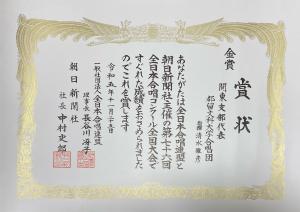 金賞
賞状
関東支部代表
都留文科大学合唱団
指揮 清水雅彦
あなたがたは全日本合唱連盟と
朝日新聞社主催の第七十六回
全日本合唱コンクール全国大会で
すぐれた成績をおさめられました
のでこれを賞します
令和五年十一月二十五日
一般社団法人全日本合唱連盟
理事長 長谷川冴子
朝日新聞社
社長 中村史郎